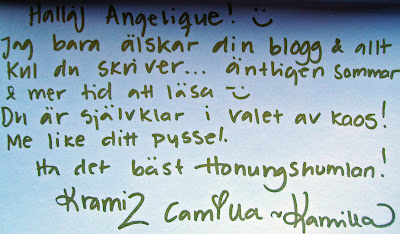 Hallåj Angelique! :)
Jag bara älskar din blogg & allt
kul du skriver... äntligen sommar
& mer tid att läsa :)
Du är självklar i valet av kaos!
Me like ditt pyssel.
Ha det bäst Honungshumlan!
Kramiz Camilla ~Kamilla